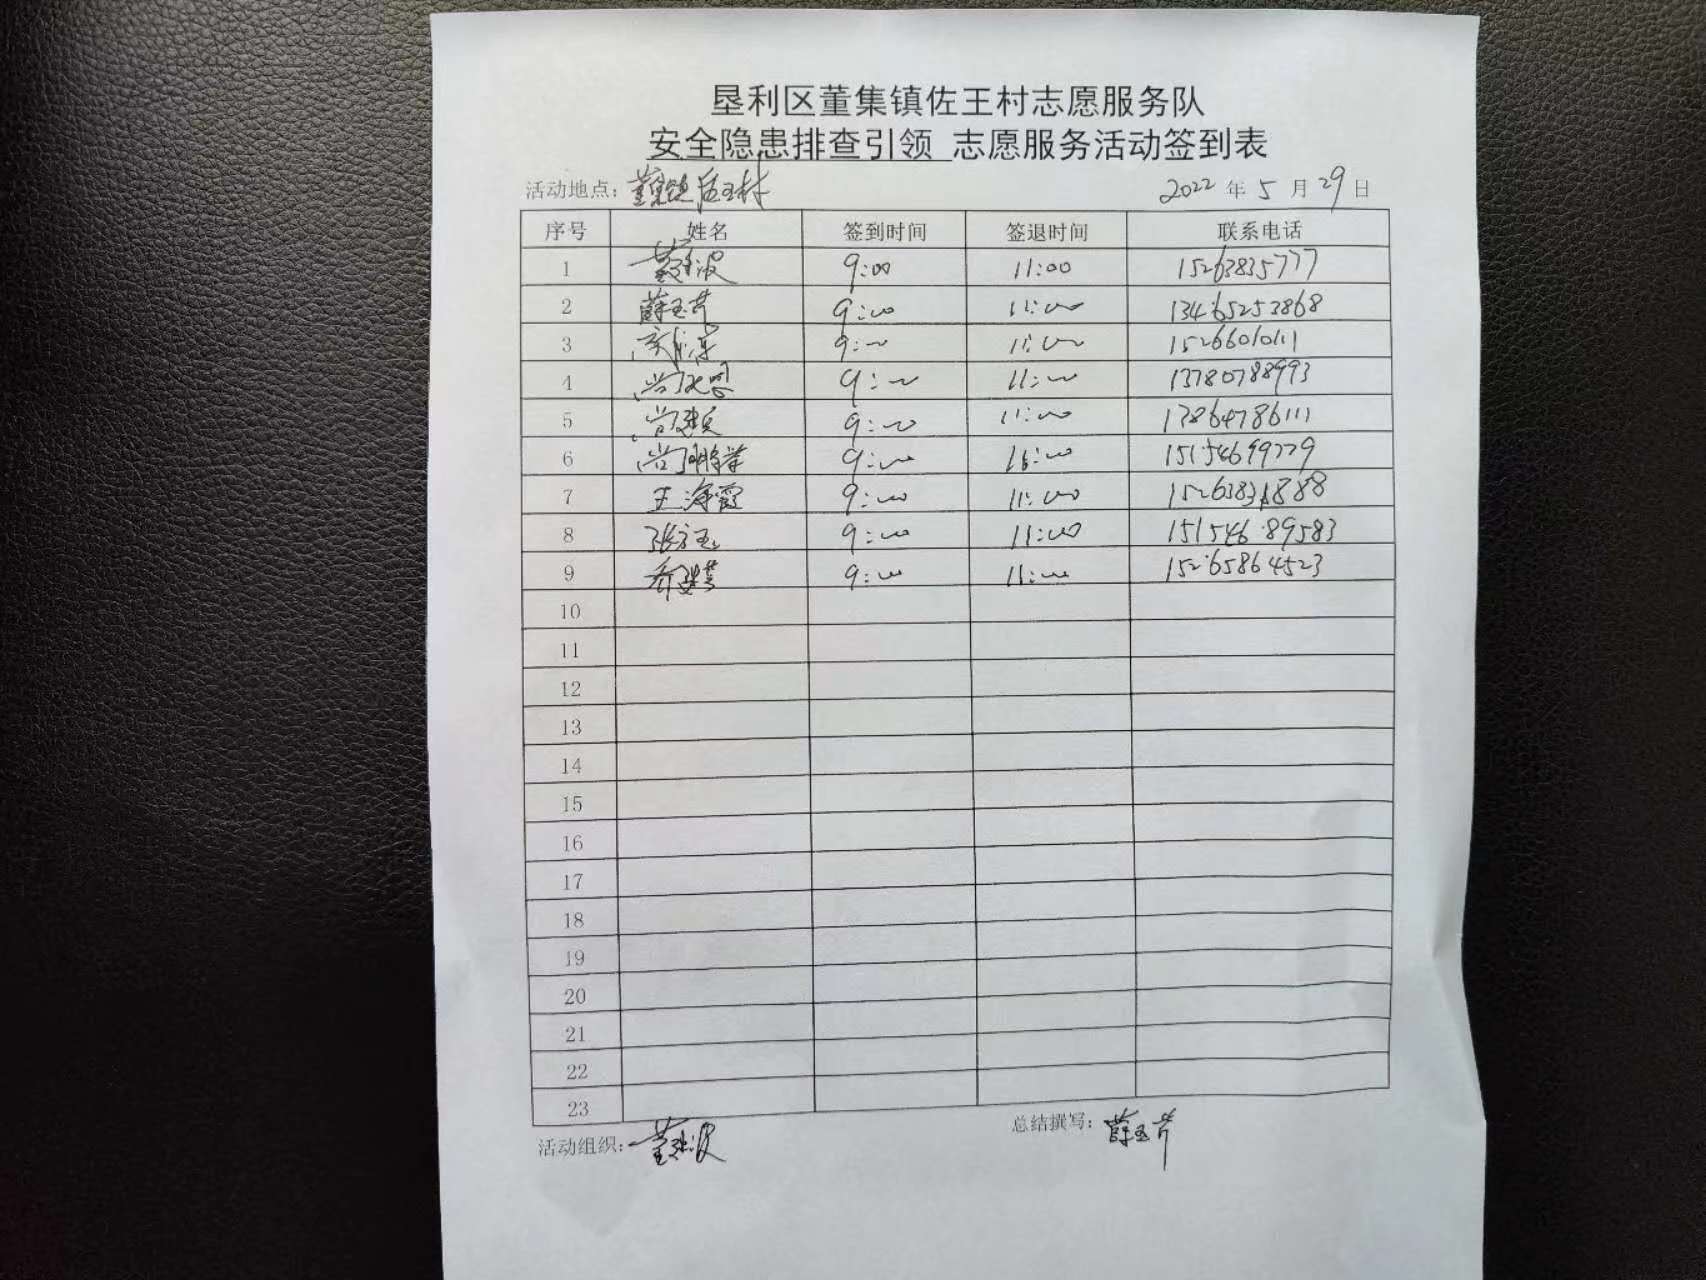 垦利区董集镇佐王村志愿服务队
安全隐患排查引领 志愿服务活动签到表
活动地点：董集镇佐王村 2022 年 5 月 29 日
序号 姓名 签到时间 签退时间 联系电话
1 9:00 11:00 15263835777
2 薛玉芹 9:00 11:00 13465253868
3 9:00 11:00 15266010111
4 9:00 11:00 13780788993
5 尚建兵 9:00 11:00 13864786111
6 9:00 11:00 15154699779
7 王海霞 9:00 11:00
8 9:00 11:00 15154689583
9 9:00 11:00 15265864523
10
11
12
13
14
15
16
17
18
19
20
21
22
23
活动组织： 总结撰写：薛玉芹